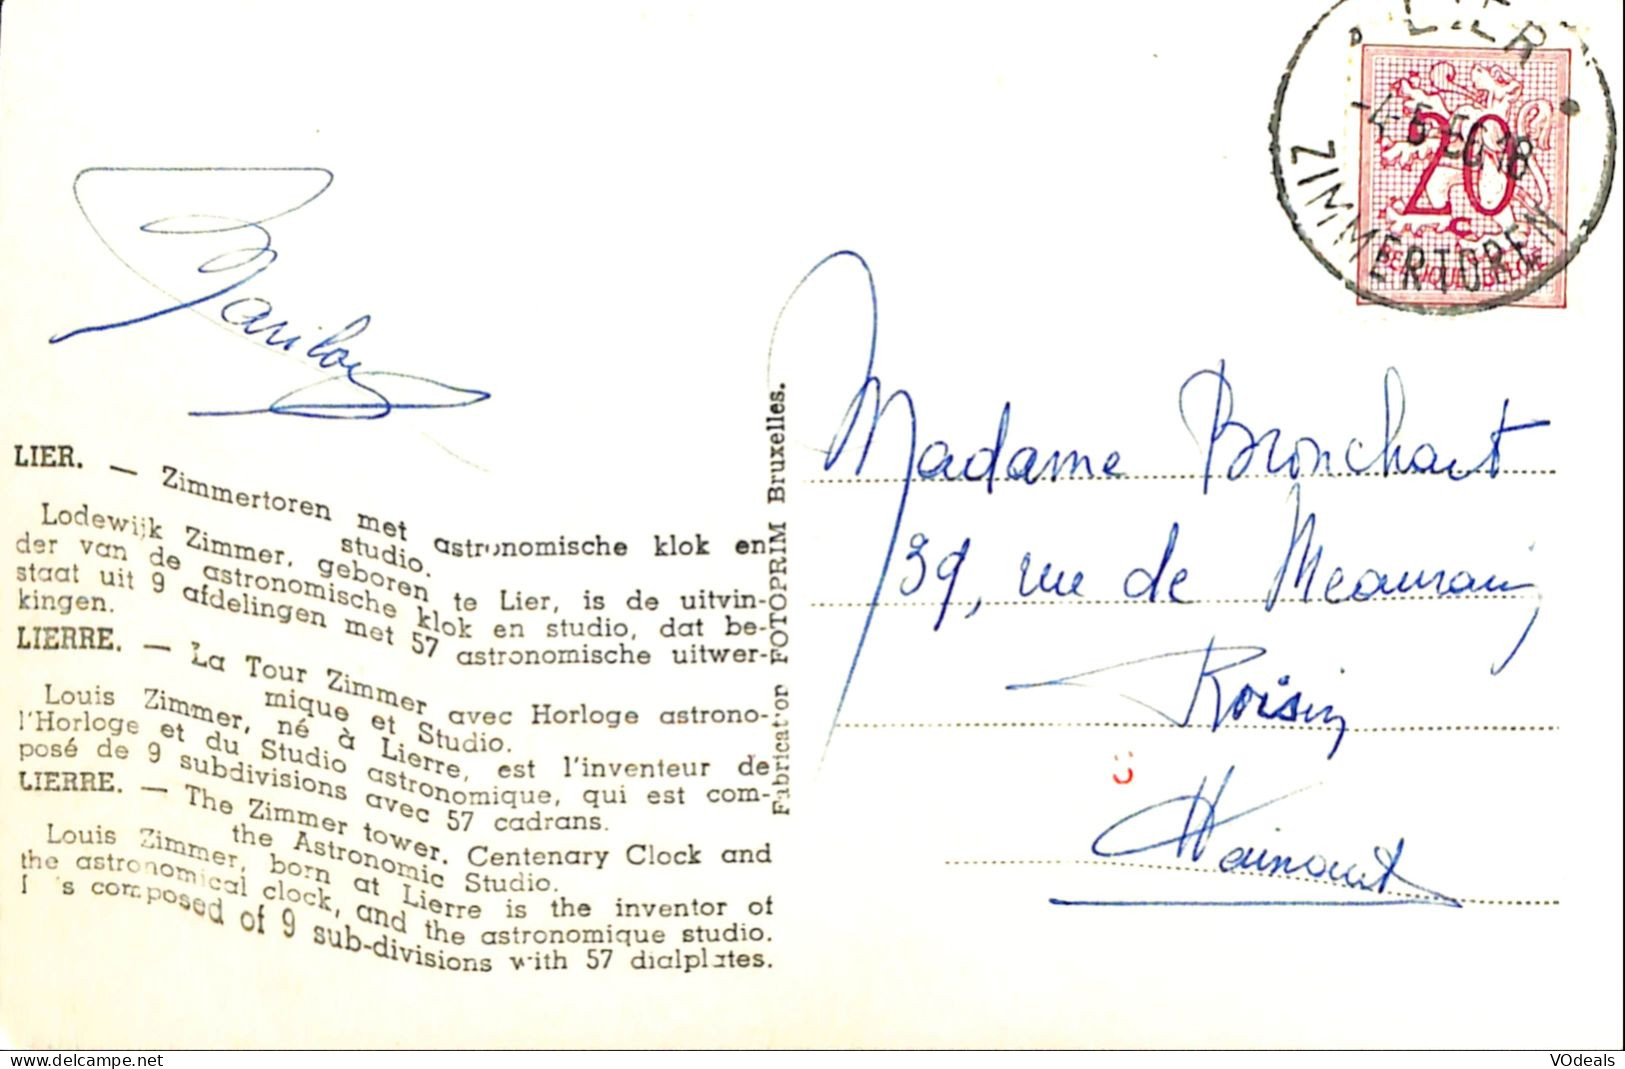 LIER
-4-5-56 18
ZIMMERTOREN
20 c
BELGIQUE BELGIË
Marilou
LIER. — Zimmertoren met astronomische klok en
studio.
Lodewijk Zimmer, geboren te Lier, is de uitvin-
der van de astronomische klok en studio, dat be-
staat uit 9 afdelingen met 57 astronomische uitwer-
kingen.
LIERRE. — La Tour Zimmer avec Horloge astrono-
mique et Studio.
Louis Zimmer, né à Lierre, est l'inventeur de
l'Horloge et du Studio astronomique, qui est com-
posé de 9 subdivisions avec 57 cadrans.
LIERRE. — The Zimmer tower. Centenary Clock and
the Astronomic Studio.
Louis Zimmer, born at Lierre is the inventor of
the astronomical clock, and the astronomique studio.
I 's composed of 9 sub-divisions with 57 dialplates.
Fabrication FOTOPRIM Bruxelles.
Madame Bronchart
39, rue de Meaurain,
Roisin
Hainaut
delcampe.net
VOdeals